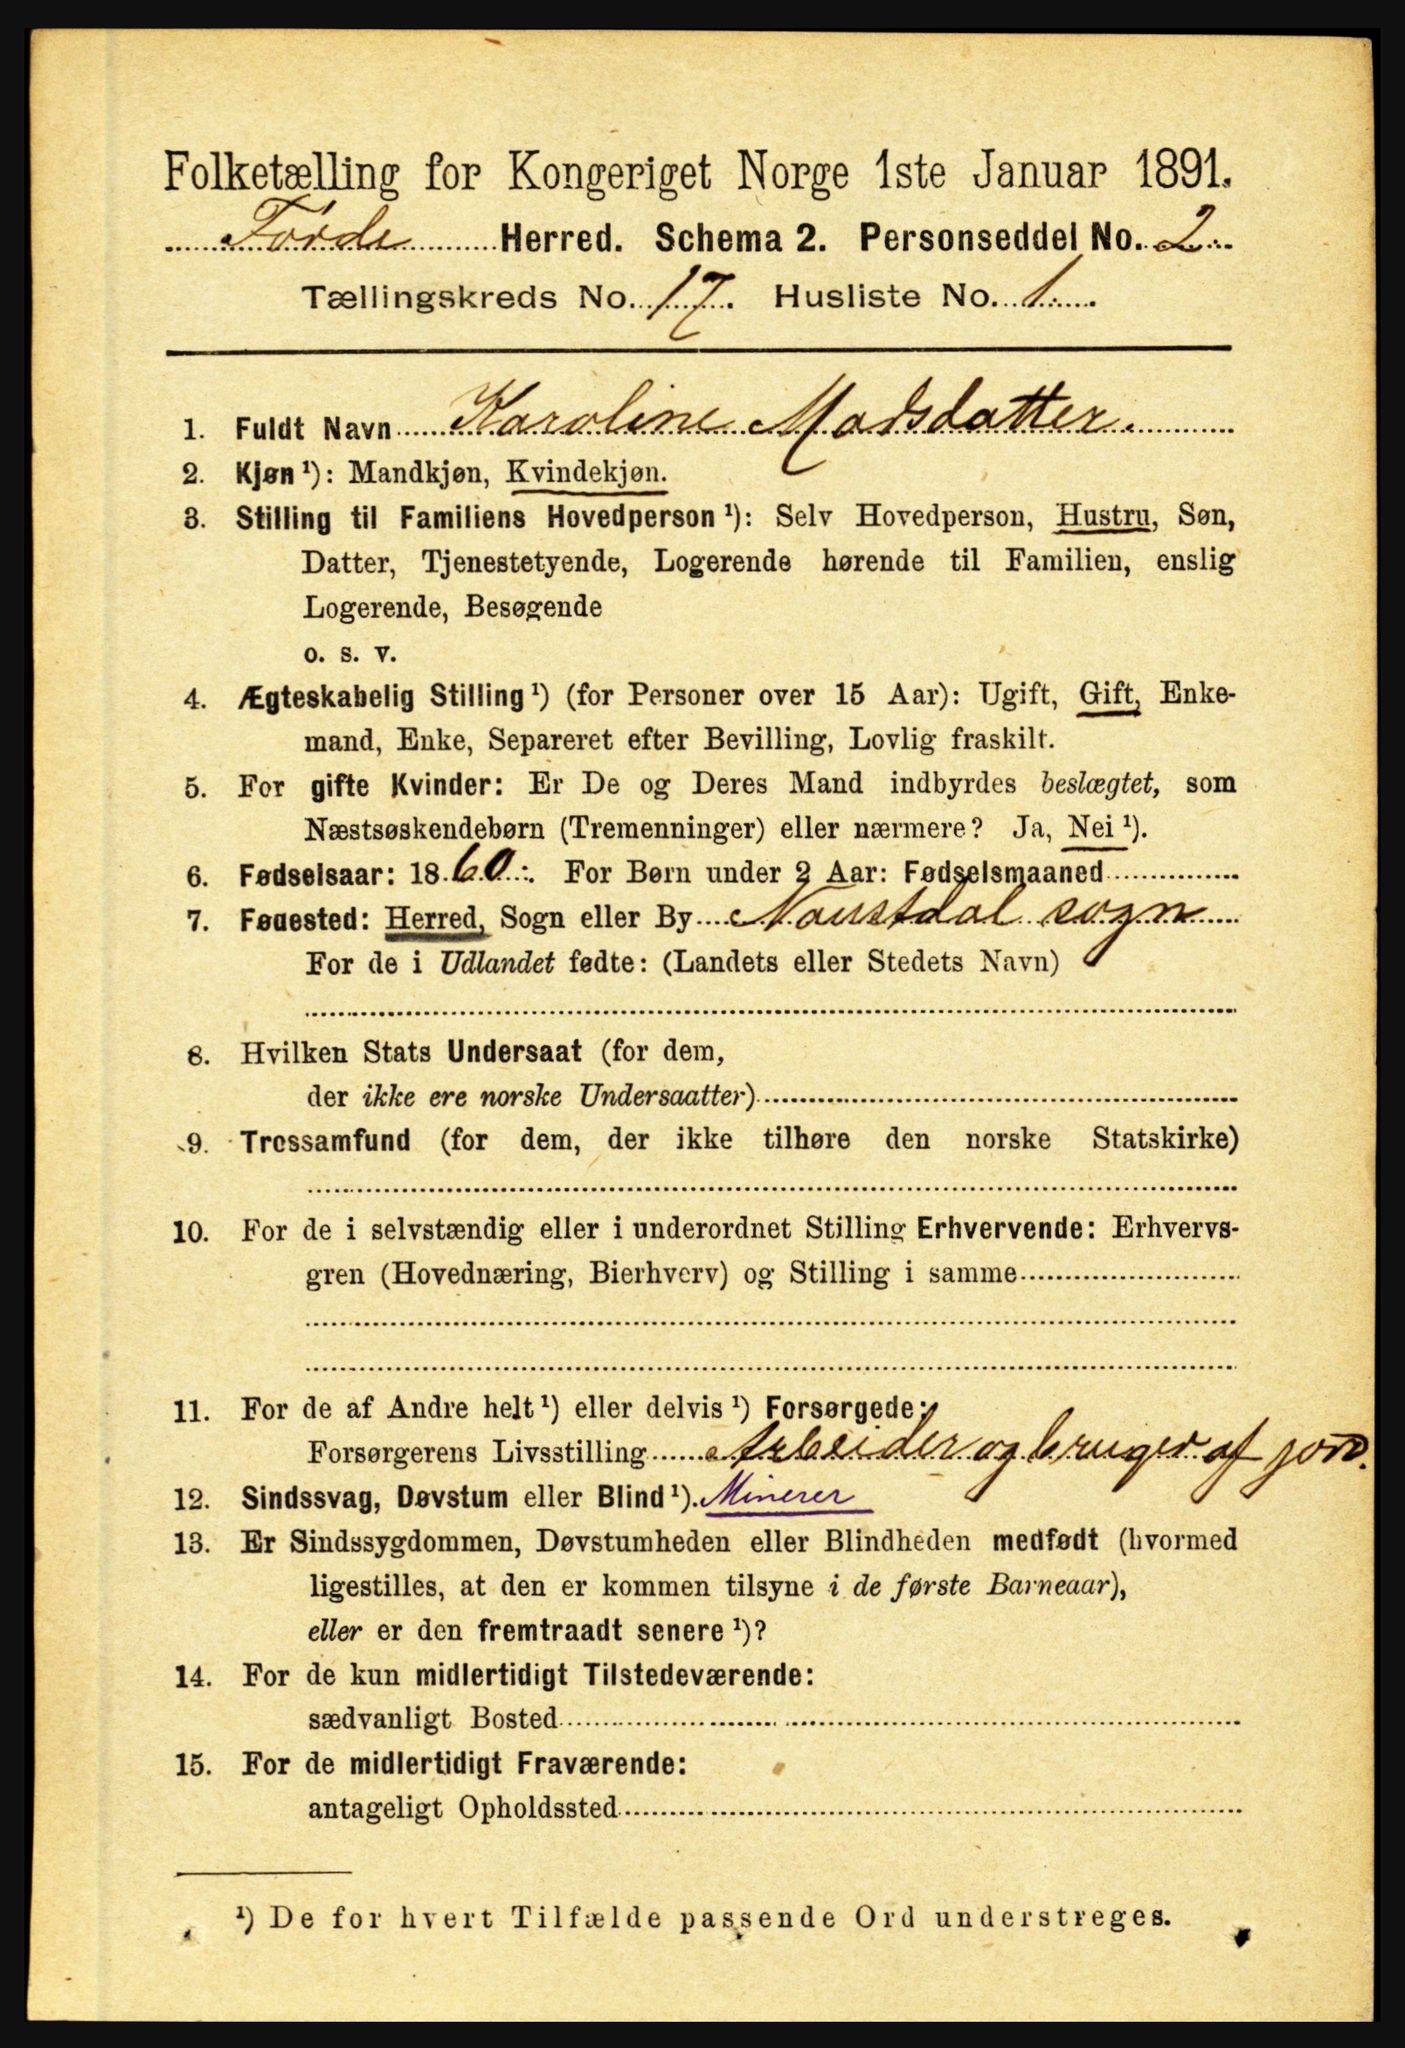 Folketælling for Kongeriget Norge 1ste Januar 1891.
Førde Herred. Schema 2. Personseddel No. 2
Tællingskreds No. 17. Husliste No. 1
1. Fuldt Navn Karoline Madsdatter.
2. Kjøn ¹): Mandkjøn, Kvindekjøn.
3. Stilling til Familiens Hovedperson ¹): Selv Hovedperson, Hustru, Søn,
Datter, Tjenestetyende, Logerende hørende til Familien, enslig
Logerende, Besøgende
o. s. v.
4. Ægteskabelig Stilling ¹) (for Personer over 15 Aar): Ugift, Gift, Enke-
mand, Enke, Separeret efter Bevilling, Lovlig fraskilt.
5. For gifte Kvinder: Er De og Deres Mand indbyrdes beslægtet, som
Næstsøskendebørn (Tremenninger) eller nærmere? Ja, Nei ¹).
6. Fødselsaar: 1860. For Børn under 2 Aar: Fødselsmaaned
7. Fødested: Herred, Sogn eller By Naustdal sogn
For de i Udlandet fødte: (Landets eller Stedets Navn)
8. Hvilken Stats Undersaat (for dem,
der ikke ere norske Undersaatter)
9. Trossamfund (for dem, der ikke tilhøre den norske Statskirke)
10. For de i selvstændig eller i underordnet Stilling Erhvervende: Erhvervs-
gren (Hovednæring, Bierhverv) og Stilling i samme
11. For de af Andre helt ¹) eller delvis ¹) Forsørgede:
Forsørgerens Livsstilling Arbeider og bruger af jord.
12. Sindssvag, Døvstum eller Blind ¹). Minerer
13. Er Sindssygdommen, Døvstumheden eller Blindheden medfødt (hvormed
ligestilles, at den er kommen tilsyne i de første Barneaar),
eller er den fremtraadt senere ¹)?
14. For de kun midlertidigt Tilstedeværende:
sædvanligt Bosted
15. For de midlertidigt Fraværende:
antageligt Opholdssted
¹) De for hvert Tilfælde passende Ord understreges.